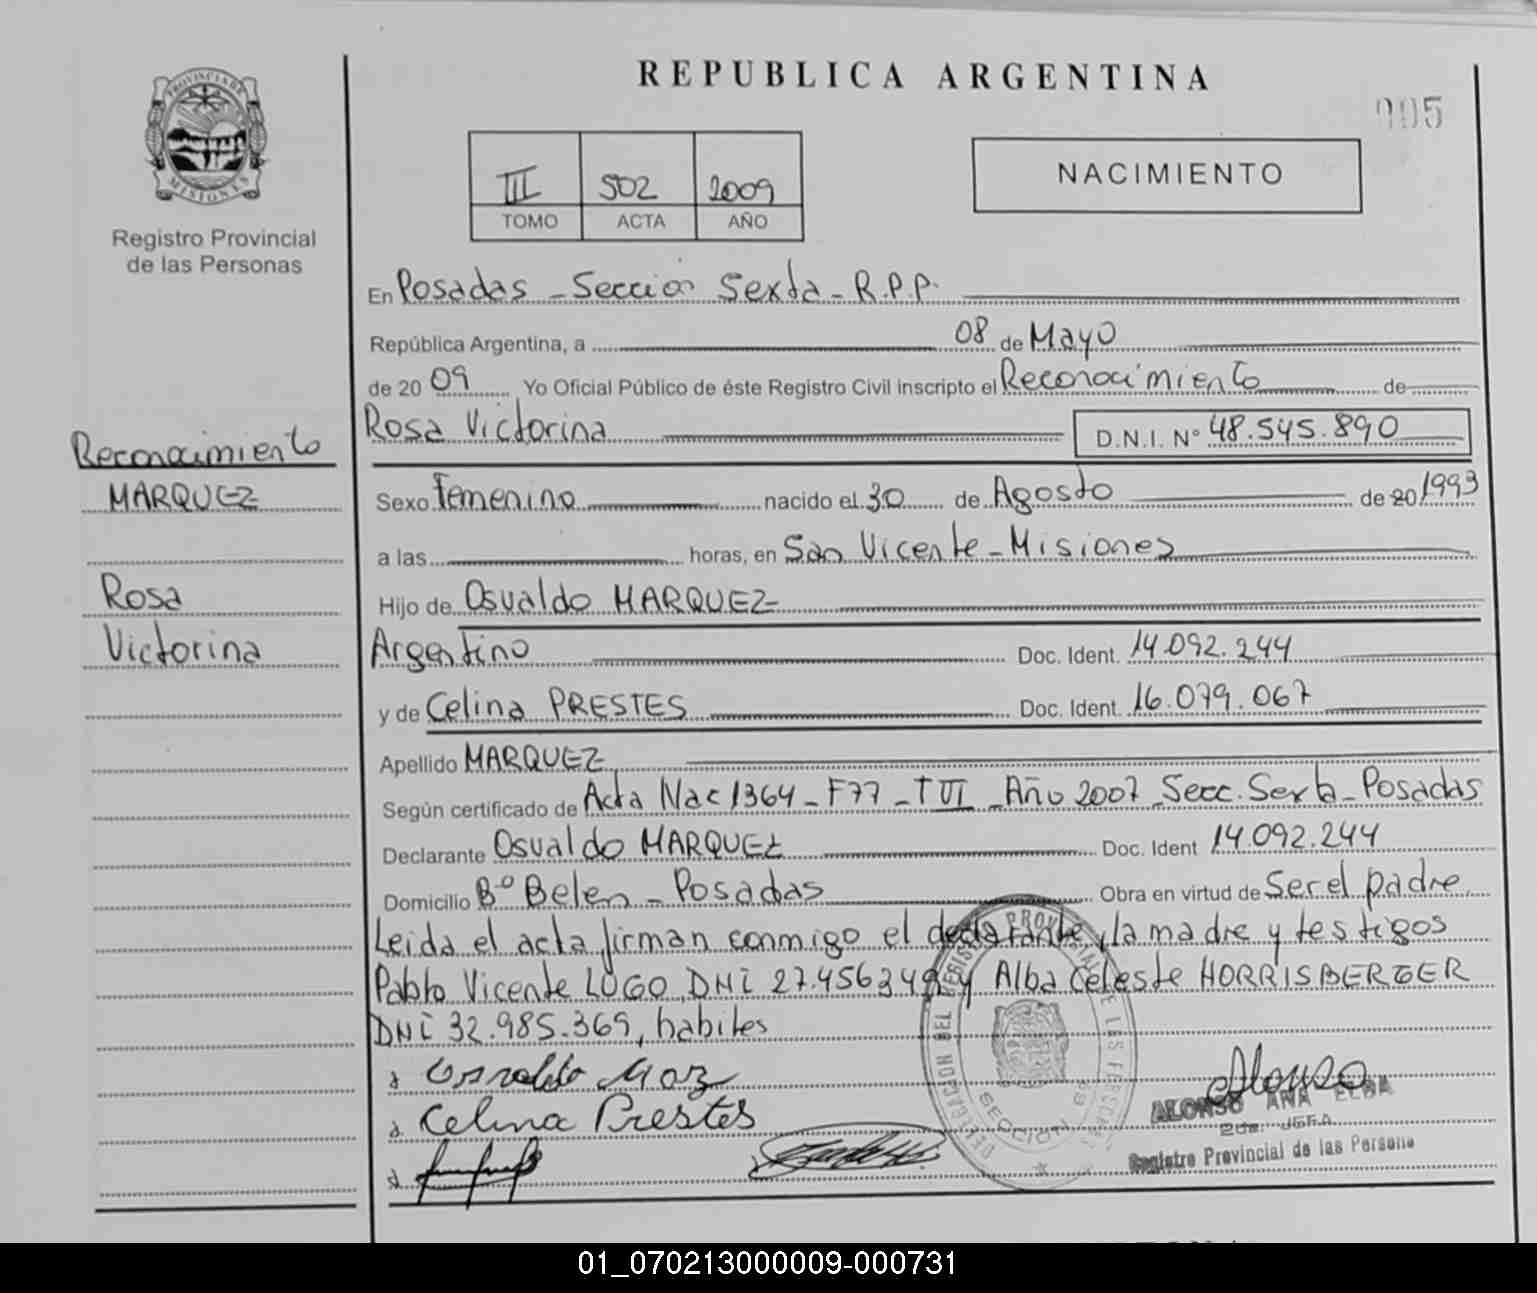 REPUBLICA ARGENTINA
005
PROVINCIA DE
MISIONES
Registro Provincial
de las Personas
III 502 2009
TOMO ACTA AÑO
NACIMIENTO
En Posadas - Seccion Sexta - R.P.P.
República Argentina, a 08 de Mayo
de 2009 Yo Oficial Público de éste Registro Civil inscripto el Reconocimiento de
Rosa Victorina D.N.I. N° 48.545.890
Reconocimiento
MARQUEZ
Rosa
Victorina
Sexo Femenino nacido el 30 de Agosto de 20/1993
a las horas, en San Vicente - Misiones
Hijo de Osvaldo MARQUEZ
Argentino Doc. Ident. 14.092.244
y de Celina PRESTES Doc. Ident. 16.079.067
Apellido MARQUEZ
Según certificado de Acta Nac 1364 - F77 - T VI - Año 2007 - Secc. Sexta - Posadas
Declarante Osvaldo MARQUEZ Doc. Ident 14.092.244
Domicilio B° Belen - Posadas Obra en virtud de Ser el padre
Leida el acta firman conmigo el declarante, la madre y testigos
Pablo Vicente LUGO DNI 27.456349 y Alba Celeste HORRISBERGER
DNI 32.985.369, habiles
Celina Prestes
Alonso
ALONSO ANA ELBA
2da. JEFA
Registro Provincial de las Persona
SECCION 6
01_070213000009-000731